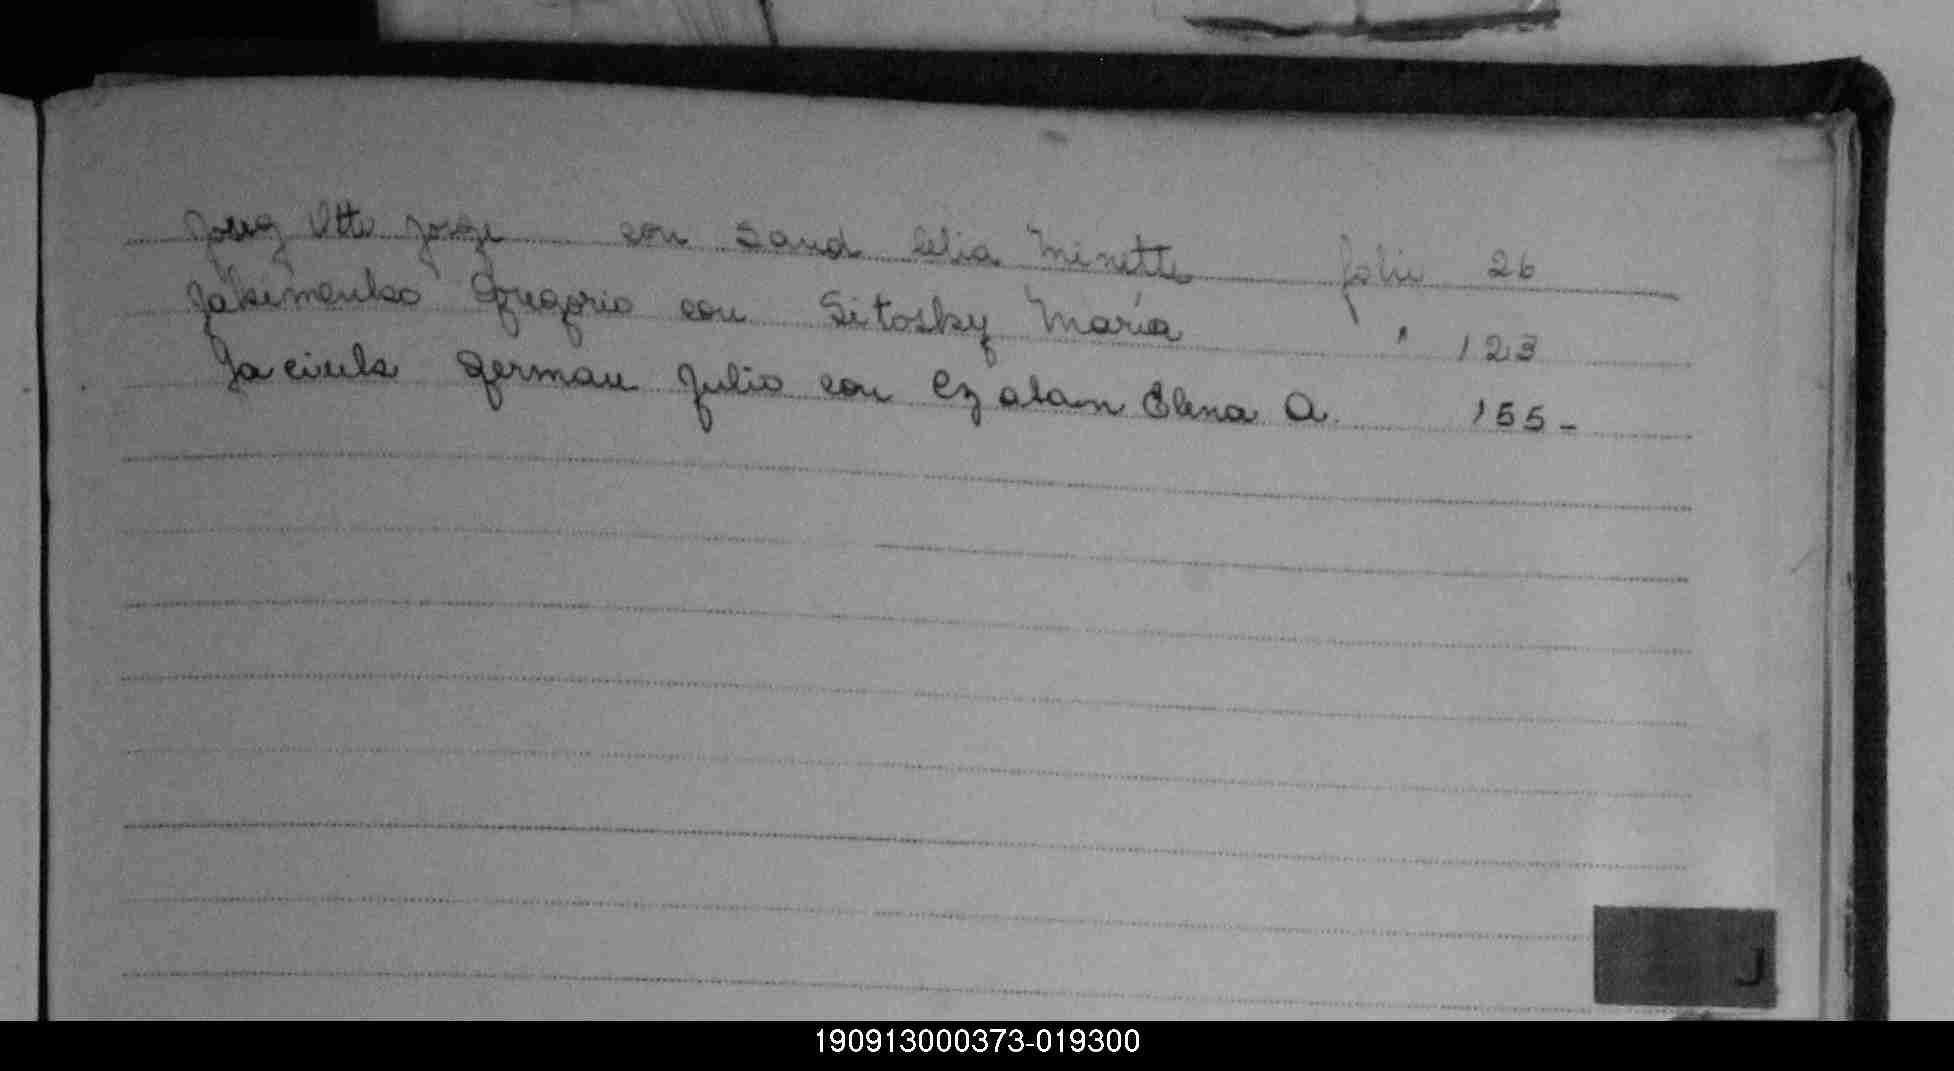 Joerg Otto Jorge con Sand Celia Minette folio 26
Jakimenko Gregorio con Sitosky María " 123
Jaciuk German Julio con Czaban Elena A. 155-
J
190913000373-019300